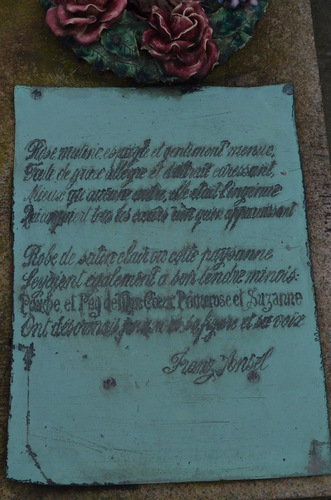 Rose mutine, espiègle et gentiment menue,
Frêle de grâce allègre et d'attrait caressant,
Mieux qu'aucune autre, elle était l'ingénue
Qui conquiert tous les cœurs rien qu'en apparaissant

Robe de satin clair ou cotte paysanne
Seyaient également à son tendre minois:
et Primerose et Suzanne
Ont désormais perdu sa figure et sa voix

Franz Ansel